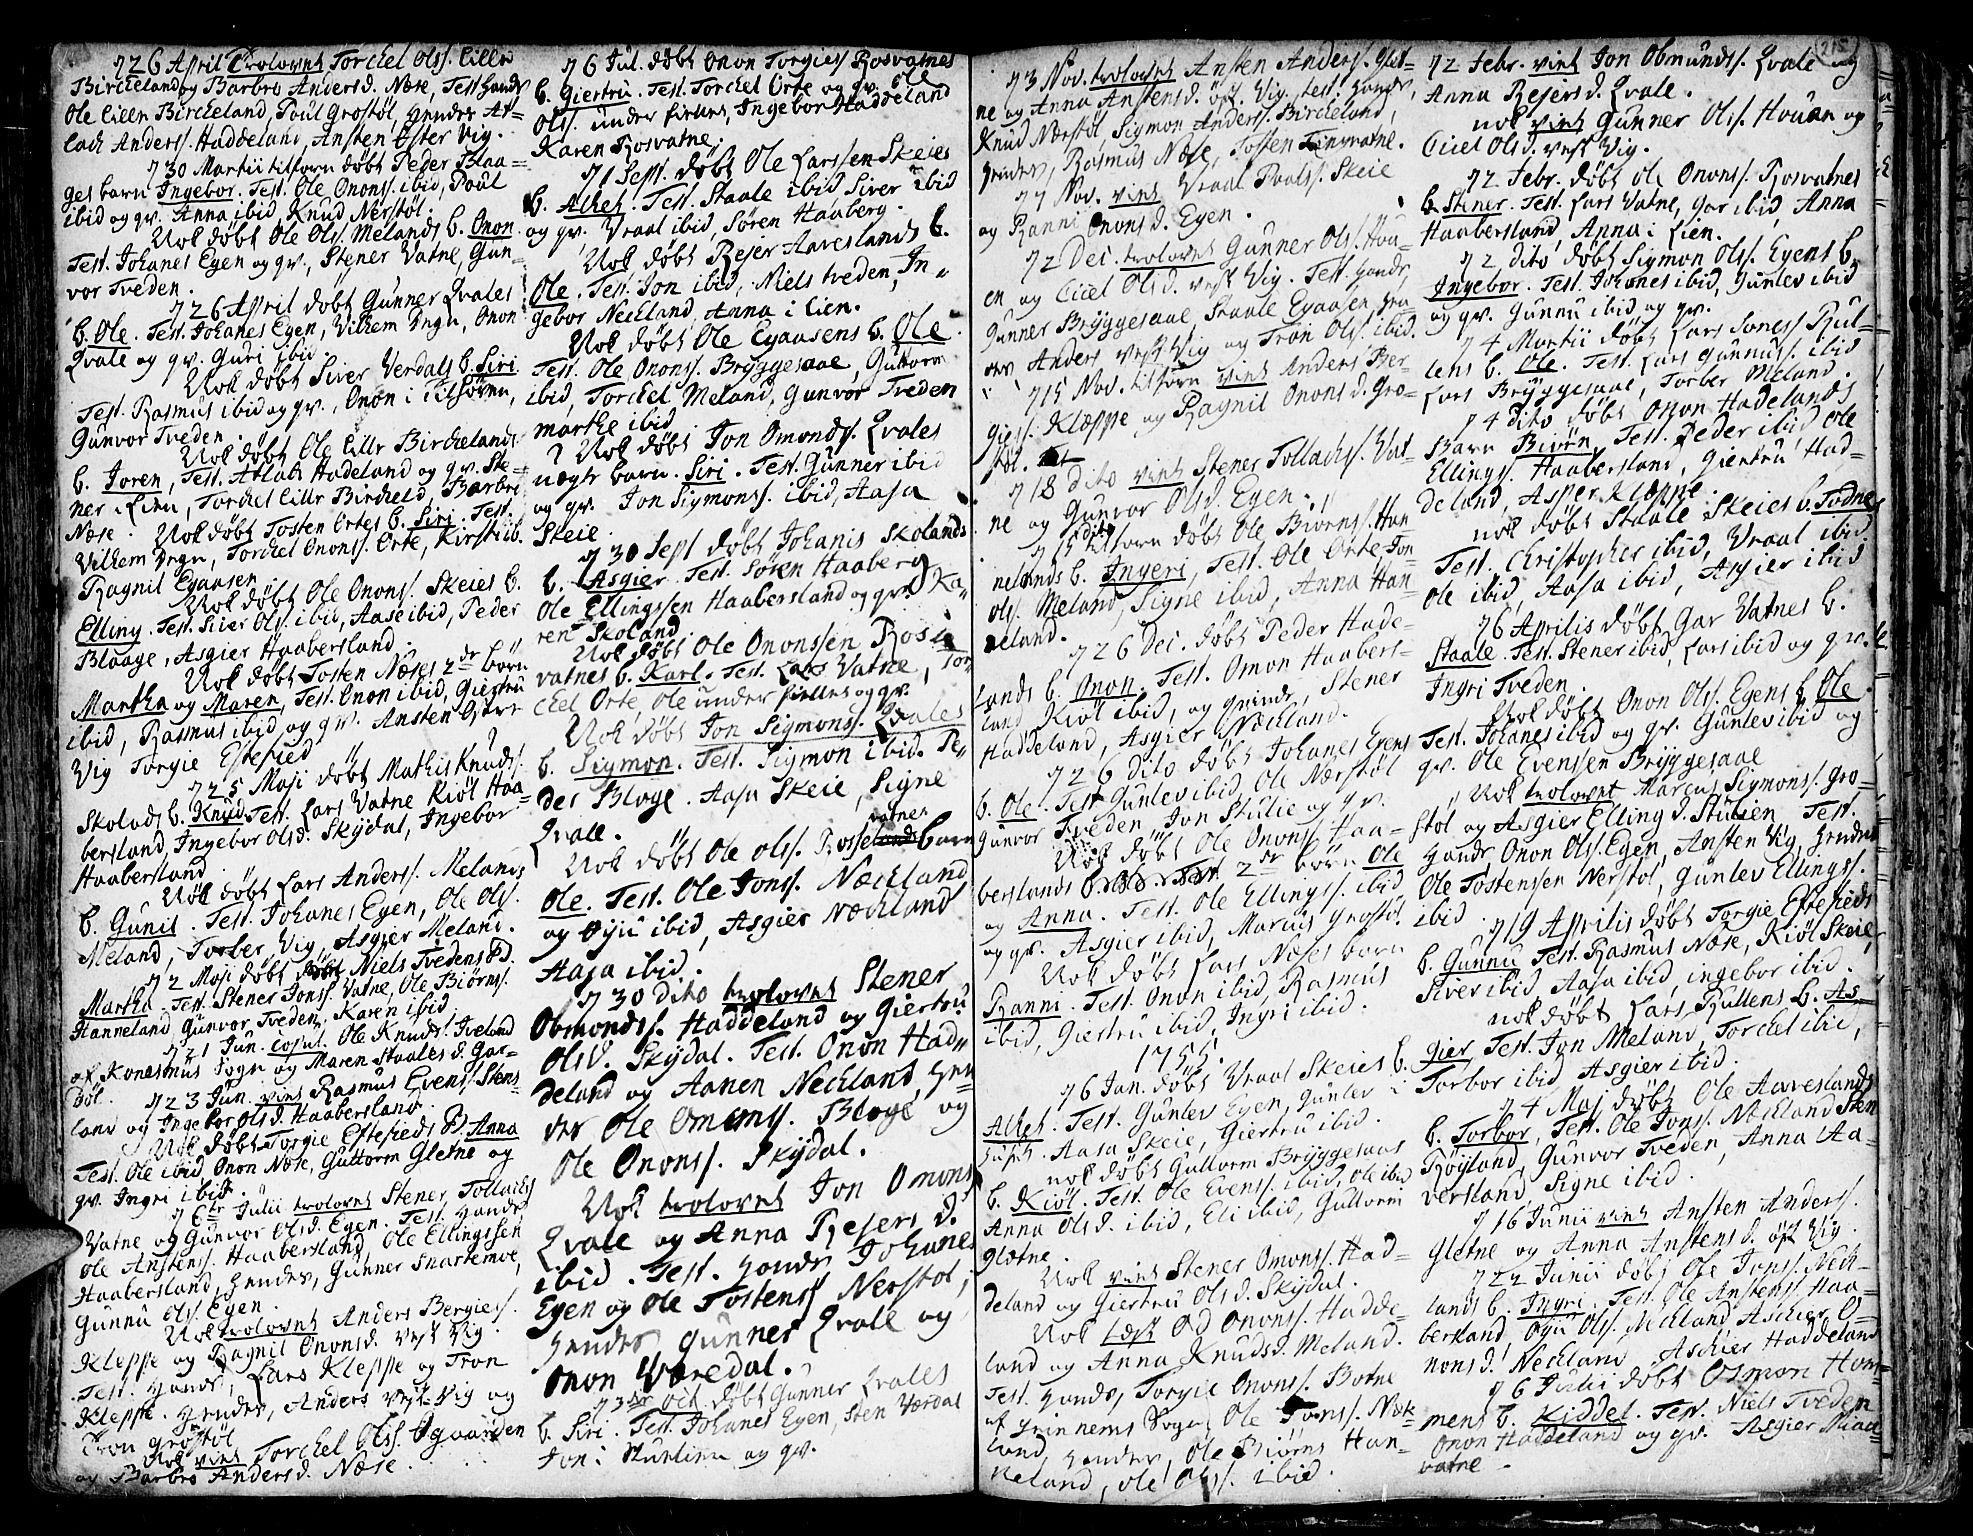 726 April trolovet Torckel Olss. Lille
Birckeland og Barbro Andersd. Næse, Test. Hands
Ole Lille Birckeland, Poul Grostøl, Hendes At-
lach Anderss. Haddeland, Ansten Øster Vig.
730 Martii tilforn døbt Peder Blaa-
ges barn Ingebor. Test. Ole Onons. ibid, Poul
ibid og qv. Anna ibid, Knud Nerstøl.
Nok døbt Ole Ols. Melands b. Onon
Test. Johanes Egen og qv., Stener Vatne, Gun-
vor Tveden.
726 April døbt Gunner Qvales
b. Ole. Test. Johanes Egen, Vilhem Ingn, Onon
Qvale og qv. Guri ibid
Nok døbt Siver Verdals b. Siri.
Test. Rasmus ibid og qv., Onon i
Gunvor Tveden.
Nok døbt Ole Lille Birckelands
b. Joren, Test. Atlak Hadeland og qv. Ste-
ner i Lien, Torckel Lille Birckeld, Barbro
Næse. Nok døbt Tosten Ortes b. Siri. Test.
Vilhem Ingn, Torckel Onons. Orte, Kirsti ib.
Ragnil Egaasen
Nok døbt Ole Onons. Skeies b.
Elling. Test. Siver Ols. ibid, Aase ibid, Peder
Blaage, Asgier Haabersland.
Nok døbt Tosten Næses 2de børn
Martha og Maren, Test. Onon ibid, Giertru
ibid, Rasmus ibid og qv. Ansten
Vig Torgie Eftested
725 Maji døbt Mathis Knuds.
Skolads b. Knud Test. Lars Vatne Kiøl Haa-
bersland, Ingebor Olsd. Skydal, Ingebor
Haabersland
Nok døbt Lars Anders. Melands
b. Gunil. Test. Johanes Egen, Ole Ols.
Meland, Torber Vig, Asgier Meland.
72 Maji døbt Niels Tvedens b.
Martha. Test. Stener Jons. Vatne, Ole Biørns.
Hanneland, Gunvor Tveden, Karen ibid
721 Jun. copul. Ole Knuds. Iveland
af Konesmus Sogn og Maren Staales d. Gar-
bøl. 723 Jun. viet Rasmus Evens. Stens-
land og Ingebor Olsd. Haabersland
Nok døbt Torgie Eftesteds b. Anna
Test. Ole ibid, Onon Næse, Guttorm Gletne og
qv. Ingri ibid.
76te Julii trolovet Stener Tollachs.
Vatne og Gunvor Olsd. Egen. Test. Hands
Ole Anstens. Haabersland, Ole Ellingssen
Haabersland, Hendes, Gunner Snartemoe,
Gunnu Ols. Egen.
Nok trolovet Anders Bergies.
Kleppe og Ragnil Ononsd. Vest Vig.
Test. Hands, Lars Kleppe og Tron
Kleppe. Hendes, Anders Vest Vig og
Tron Grostøl
Nok viet Torckel Ols. Øgaarden
og Barbro Andersd. Næse.
76 Jul. døbt Onon Torgies Rosvatnes
b. Giertru. Test. Torckel Orte og qv. Ole
Ols. under fieldet, Ingebor Haddeland
Karen Rosvatne.
71 Sept. døbt Ole Larssen Skeies
b. Alhet. Test. Staale ibid Siver ibid
og qv. Vraal ibid, Søren Haaberg.
Nok døbt Rejer Aareslands b.
Ole. Test. Jon ibid, Niels tveden, In-
gebor Neckland, Anna i Lien.
Nok døbt Ole Egaasens b. Ole
Test. Ole Onons. Bryggesaae, Guttorm
ibid, Torckel Meland, Gunvor Tveden
marthe ibid
Nok døbt Jon Omonds. Qvales
uægte barn. Siri. Test. Gunner ibid
og qv. Jon Sigmons. ibid, Aasa
Skeie.
730 Sept døbt Johanis Skolands
b. Asgier. Test. Søren Haaberg
Ole Ellingssen Haabersland og qv. Ka-
ren Skoland
Nok døbt Ole Ononssen Ros-
vatnes b. Karl. Test. Lars Vatne, Tor-
ckel Orte, Ole under fieldet og qv.
Nok døbt Jon Sigmons. Qvales
b. Sigmon. Test. Sigmon ibid. Pe-
der Bloge. Aasa Skeie, Signe
Qvale.
Nok døbt Ole Ols. Rosse vatnes barn
Ole. Test. Ole Jons. Næckland
og Øyu ibid, Asgier Næckland
Aasa ibid.
730 dito trolovet Stener
Obmonds. Haddeland og Giertru
Olsd. Skydal. Test. Onon Had-
deland og Aanen Neckland, Hen-
des Ole Omons. Bloge og
Ole Onons. Skydal.
Nok trolovet Jon Omons.
Qvale og Anna Rejers d.
ibid. Test. Hands Johanes
Egen og Ole Tostens Nerstøl,
Hendes Gunner Qvale og
Onon Væredal.
73de Oct døbt Gunner Qvales
b. Siri. Test. Johanes Egen, Sten Værdal
Jon i Stuhlien og qv.
73 Nov. trolovet Ansten Anders. Glet-
ne og Anna Anstensd. øst. Vig. test. Hands,
Knud Nærstøl, Sigmon Anders. Birckeland,
Hendes, Rasmus Næse, Tosten
77 Nov. viet Vraal Poals. Skeie
og Ranni Onons d. Egen.
72 Dec. trolovet Gunner Ols. Hou-
en og Cicel Olsd. vest Vig. Test. Hands,
Gunner Bryggesaae, Staale Egaasen, Hen-
des Anders Vest Vig og Tron Ols. ibid.
715 Nov. tilforn viet Anders Ber-
gies. Klæppe og Ragnil Onons d. Gro-
støl.
718 dito viet Stener Tollachs. Vat-
ne og Gunvor Olsd. Egen.
715 dito tilforn døbt Ole Biorns. Han-
nelands b. Ingeri, Test. Ole Orte Jon
Ols. Meland, Signe ibid, Anna Han-
neland.
726 Dec. døbt Peder Hade-
lands b. Onon. Test. Omon Haabers-
land Kiøl ibid, og qvinde, Stener
Haddeland, Asgier Neckland.
726 dito døbt Johanes Egens
b. Ole. Test. Gunlev ibid, Ole Nærstøl
Gunvor Tveden Jon Stulie og qv.
Nok døbt Ole Onons. Haa-
berslands 2de børn Ole
og Anna. Test. Ole Ellings. ibid
og qv. Asgier ibid, Marcus Grostøl
Nok døbt Lars Næses barn
Ranni. Test. Onon ibid, Rasmus
ibid, Giertru ibid, Ingri ibid.
1755.
76 Jan. døbt Vraal Skeies b.
Alhet. Test. Gunlev Egen, Gunlev i
. Aasa Skeie, Giertru ibid.
nok døbt Guttorm Bryggesaas
b. Kiøl. Test. Ole Evens. ibid, Ole ibid
Anna Olsd. ibid, Eli ibid, Guttorm
Glætne.
Nok viet Stener Omons. Had-
deland og Giertru Olsd. Skydal.
Nok læst Od Onons. Hadde-
land og Anna Knudsd. Meland.
Test. Hands, Torgie Onons. Botne
af Grinnems Sogn, Ole Jons. Neck-
land, Hendes, Ole Biørns Han-
neland, Ole Ols. ibid.
72 Febr. viet Jon Obmunds. Qvale og
Anna Rejersd. Qvale.
nok viet Gunner Ols. Houen og
Cicel Olsd. vest Vig.
72 Febr. døbt Ole Onons. Rosvatnes
b. Stener. Test. Lars Vatne, Gar ibid, Anna
Haabersland, Anna i Lien.
72 dito døbt Sigmon Ols. Egens b.
Ingebor. Test. Johanes ibid, Gunlev ibid
og qv. Gunnu ibid og qv.
74 Martii døbt Lars Rul-
lens b. Ole. Test. Lars Gunnus. ibid
Lars Bryggesaae, Torber Meland.
74 dito døbt Onon Hadelands
Barn Biørn, Test. Peder ibid Ole
Ellings. Haabersland, Giertru Had-
deland, Asper Klæppe.
nok døbt Staale Skeies b. Todne
Test. Christopher ibid, Vraal ibid
Ole ibid, Aasa ibid, Asgier ibid
76 Aprilis døbt Gar Vatnes b.
Staale. Test. Stener ibid, Lars ibid og qv.
Ingri Tveden.
Nok døbt Onon Ols. Egens b. Ole.
Test. Johanes ibid og qv. Gunlev ibid og
qv. Ole Evensen Bryggesaae
Nok trolovet Marcus Sigmons. Gro-
støl og Asgier Elling d. Stulien Test.
Hands Onon Ols. Egen, Ansten Vig, Hendes
Ole Tostensen Nerstøl, Gunlev Ellings.
ibid. 719 Aprilis døbt Torgie Eftesteds
b. Gunnu Test. Rasmus Næse, Kiøl Skeie,
Siver ibid, Aasa ibid, ingebor ibid.
nok døbt Lars Rullens b. As-
gier, Test. Jon Meland, Torckel ibid,
Torbor ibid, Asgier ibid.
74 Maj døbt Ole Aareslands
b. Torbor, Test. Ole Jons. Neckland Sten
Røyland, Gunvor Tveden, Anna Aa-
versland, Signe ibid.
716 Junii viet Ansten Anders.
Gletne og Anna Anstens d. øst Vig
722 Junii døbt Ole Jons. Neck-
lands b. Ingri. Test. Ole Anstens. Haa-
bersland, Øyu Ols. Neckland Aschier O-
nonsd. Neckland Aschier Haddeland
76 Julii døbt Osmon Hom-
mens b. Kiddel. Test. Niels Tveden
Onon Haddeland og qv. Asgier
vatne.
215